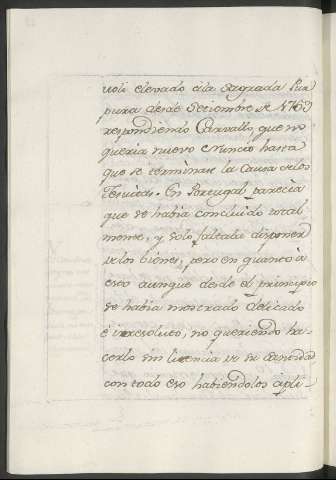 uoli elevado à la Sagrada Pur
pura desde Setiembre de 1763
respondiendo Carvallo, que no
queria nuevo Nuncio hasta
que se terminase la Causa de los
Jesuitas. En Portugal parecia
que se habia concluido total
mente, y solo faltaba disponer
de los bienes; pero en quanto à
esto aunque desde el principio
se habia mostrado delicado
è irresoluto, no queriendo ha-
cerlo sin licencia de su Santidad
con todo eso habiendolos apli